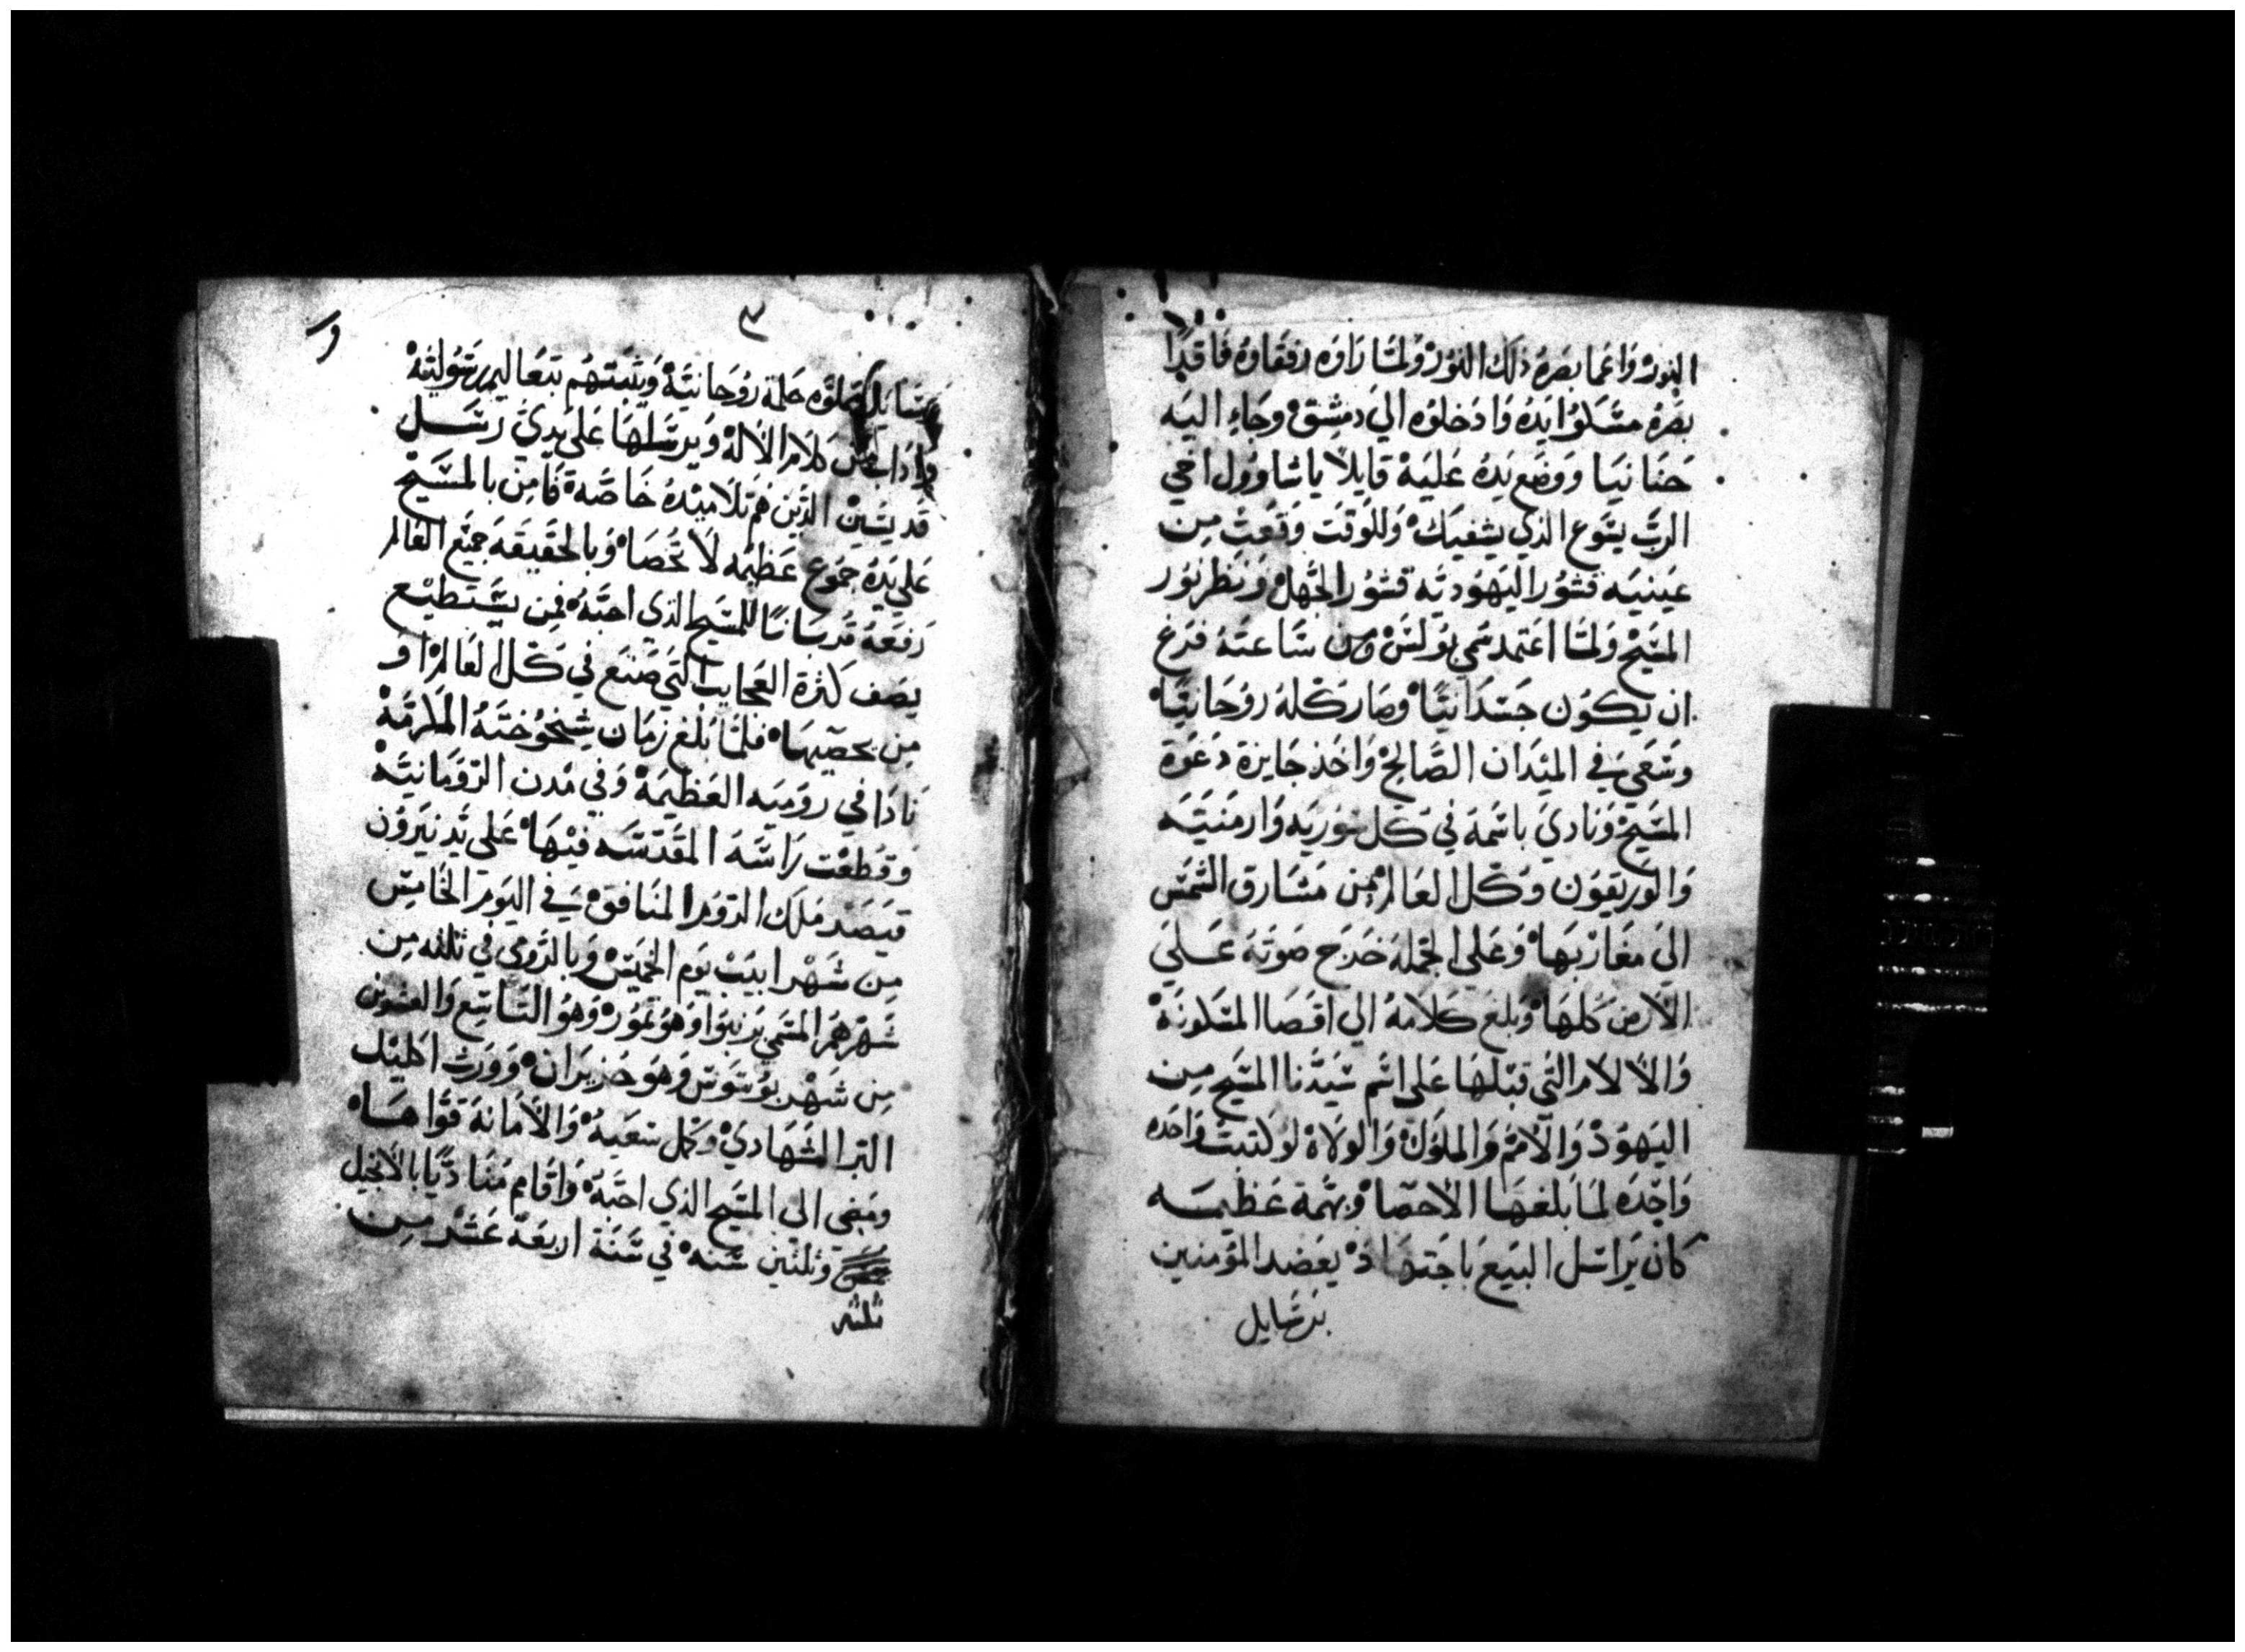 النور واعما بصره ذلك النور ولما راوه رفقاوه فاقدا
بصره مسكوا يده وادخلوه الي دمشق وجاء اليه
حنانيا ووضع يده عليه قايلا ياشاوول اخي
الرب يسوع الذي يشفيك وللوقت وقعت من
عينيه قشور اليهوديه قشور الجهل ونظر نور
المسيح ولما اعتمد سمي بولس ومن ساعته فرغ
ان يكون جسدانيا وصار كله روحانيا
وسعي في الميدان الصالح واخذ جايزة دعوة
المسيح ونادي باسمه في كل سوريه وارمنيه
والوريقون وكل العالم من مشارق الشمس
الي مغاربها وعلي الجمله خرج صوته علي
الارض كلها وبلغ كلامه الي اقصا المسكونه
والالام التي قبلها علي اسم سيدنا المسيح من
اليهود والامم والملوك والولاه لو كتبت واحده
واحده لما بلغها الاحصا وبهمة عظيمه
كان يراسل البيع باجتهاد يعضد المومنين
برسايل
٣
و
مملوه حلمة روحانية ويثبتهم بتعاليم رسوليه
كلام الاله ويرسلها علي يدي رسل
قديسين الذين هم تلاميده خاصه فامن بالمسيح
علي يده جموع عظيمه لا تحصا وبالحقيقه جميع العالم
رفعه قربانا للمسيح الذي احبه فمن يستطيع
يصف كثرة العجايب التي صنع في كل العالم او
من يحصيها فلما بلغ زمان شيخوخته المكرمه
نادا في روميه العظيمة وفي مدن الرومانيه
وقطعت راسه المقدسه فيها علي يد نيرون
قيصر ملك الروم المنافق في اليوم الخامس
من شهر ابيب يوم الخميس وبالرومي في ثلثه من
شهرهم المسمي وهو تموز وهو التاسع والعشرون
من شهر وهو حزيران وورث اكليل
البر الشهادي وكمل سعيه والامانة قواها
ومضي الي المسيح الذي احبه واقام مناديا بالانجيل
وثلثين سنه في سنة اربعة عشر من
ثلثه